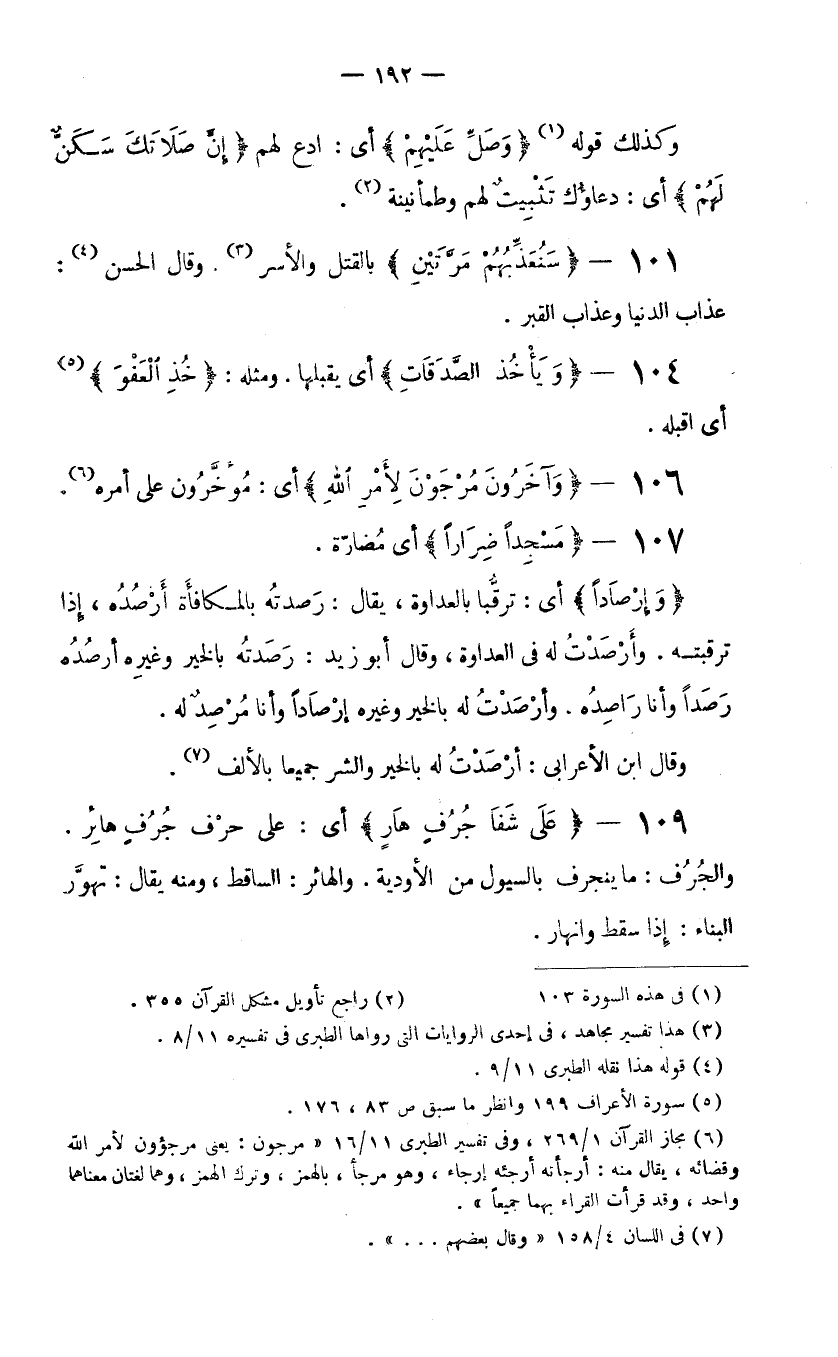 — ١٩٢ —
وكذلك قوله (١) ﴿ وَصَلِّ عَلَيْهِمْ ﴾ أى : ادع لهم ﴿ إِنَّ صَلَاتَكَ سَكَنٌ
لَهُمْ ﴾ أى : دعاؤك تَثْبِيتٌ لهم وطمأنينة (٢) .
١٠١ — ﴿ سَنُعَذِّبُهُمْ مَرَّتَيْنِ ﴾ بالقتل والأسر (٣) . وقال الحسن (٤) :
عذاب الدنيا وعذاب القبر .
١٠٤ — ﴿ وَيَأْخُذ الصَّدَقَاتِ ﴾ أى يقبلها . ومثله : ﴿ خُذِ ٱلْعَفْوَ ﴾ (٥)
أى اقبله .
١٠٦ — ﴿ وَآخَرُونَ مُرْجَوْنَ لِأَمْرِ ٱللهِ ﴾ أى : مُؤَخَّرُون على أمره (٦) .
١٠٧ — ﴿ مَسْجِداً ضِرَاراً ﴾ أى مُضارّة .
﴿ وَإِرْصَاداً ﴾ أى : ترقُّبا بالعداوة ، يقال : رَصدتُه بالمكافأة أَرْصُدُه ، إِذا
ترقبته . وأَرْصَدْتُ له فى العداوة ، وقال أبو زيد : رَصَدتُه بالخير وغيرِه أرصُدُه
رَصَداً وأنا رَاصِدُه . وأرْصَدْتُ له بالخير وغيره إرْصَاداً وأنا مُرْصِدٌ له .
وقال ابن الأعرابى : أرْصَدْتُ له بالخير والشر جميعا بالألف (٧) .
١٠٩ — ﴿ عَلَى شَفَا جُرُفٍ هَارٍ ﴾ أى : على حرْف جُرُفٍ هائِر .
والجُرُف : ما ينجرف بالسيول من الأودية . والهائر : الساقط ، ومنه يقال : تهوَّر
البناء : إِذا سقط وانهار .
(١) فى هذه السورة ١٠٣ (٢) راجع تأويل مشكل القرآن ٣٥٥ .
(٣) هذا تفسير مجاهد ، فى إحدى الروايات التى رواها الطبرى فى تفسيره ٨/١١ .
(٤) قوله هذا نقله الطبرى ٩/١١ .
(٥) سورة الأعراف ١٩٩ وانظر ما سبق ص ٨٣ ، ١٧٦ .
(٦) مجاز القرآن ٢٦٩/١ ، وفى تفسير الطبرى ١٦/١١ « مرجون : يعنى مرجؤون لأمر الله
وقضائه ، يقال منه : أرجأته أرجئه إرجاء ، وهو مرجأ ، بالهمز ، وترك الهمز ، وهما لغتان معناهما
واحد ، وقد قرأت القراء بهما جميعاً » .
(٧) فى اللسان ١٥٨/٤ « وقال بعضهم . . . » .